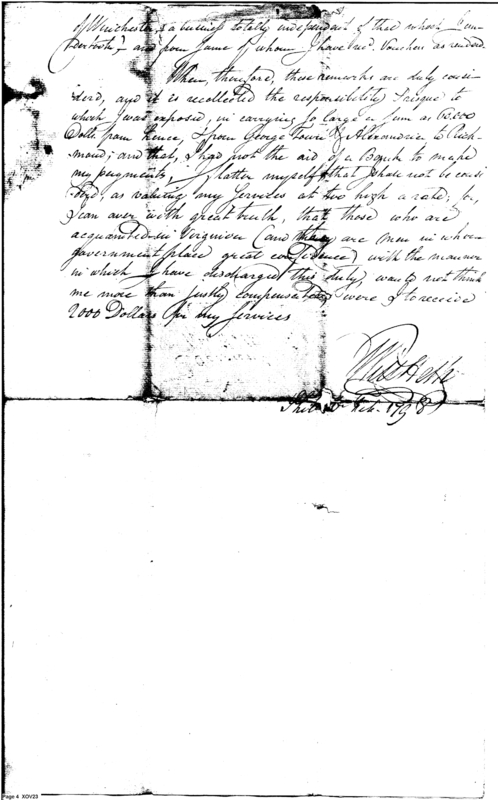 of Winchester, & a business totally independent of that which I un-
dertook,) and from some of whom I have bus'd. Vouchers as rendered
When, therefore, these remarks are duly consi-
derd, and it is recollected the responsibility & risque to
which I was exposed, in carrying so large a sum as 60.000
Dolls. from hence, & from George Town & Alexandria to Rich-
mond; and that, I had not the aid of a Bank to make
my payments, I flatter myself that I shall not be consi-
derd, as valuing my Services at two high a rate; for,
I can aver with great truth, that those who are
acquainted in Virginia (and they are men in whom
government place great confidence) with the manner
in which I have discharged this duty, would not think
me more than justly compensated were I to receive
2000 Dollars for my Services
Philad. Feb. 1798
Page 4 XOV23